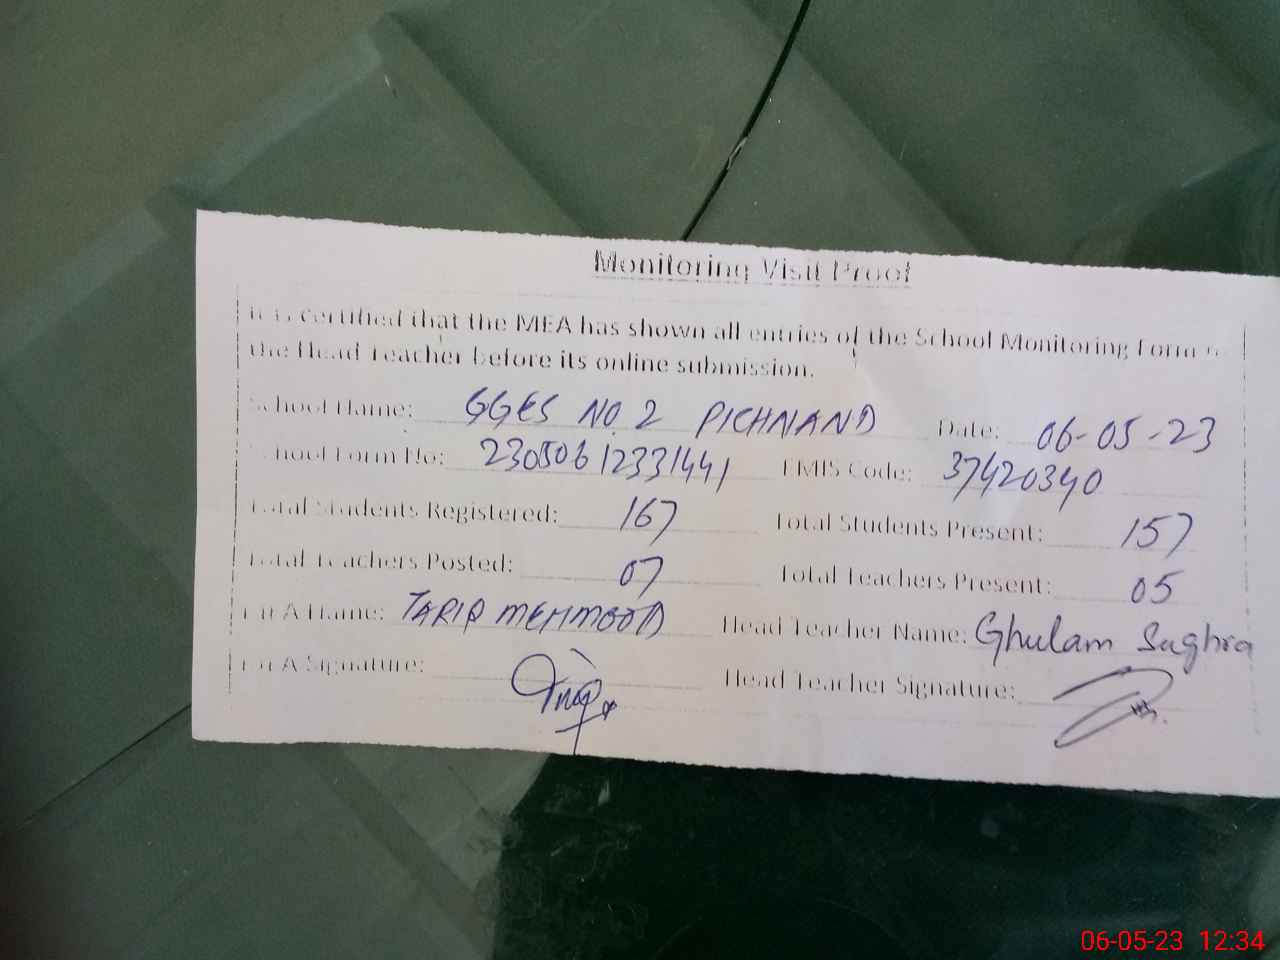 Monitoring Visit Proof
It is certified that the MEA has shown all entries of the School Monitoring Form to
the Head Teacher before its online submission.
School Name: GGES NO. 2 PICHNAND Date: 06-05-23
School Form No: 23050612331441 EMIS Code: 37420340
Total Students Registered: 167 Total Students Present: 157
Total Teachers Posted: 07 Total Teachers Present: 05
MEA Name: TARIQ MEHMOOD Head Teacher Name: Ghulam Sughra
MEA Signature: Head Teacher Signature:
06-05-23 12:34